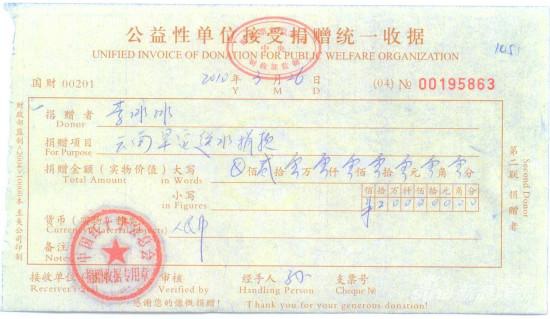 公益性单位接受捐赠统一收据
UNIFIED INVOICE OF DONATION FOR PUBLIC WELFARE ORGANIZATION
国财 00201 2010 年 3 月 26 日 (04) № 00195863
Y M D
捐赠者 李冰冰
Donor
捐赠项目 云南旱灾送水捐款
For Purpose
捐赠金额(实物价值)大写 佰 贰 拾 零 万 零 仟 零 佰 零 拾 零 元 零 角 零 分
Total Amount in Words
小写 百十万仟佰拾元角分
in Figures ¥20000000
货币( 人民币
备注
接收单位 审核 经手人 支票号
Receiver's Verified by Handling Person Cheque №
感谢您的慷慨捐赠! Thank you for your generous donation!
第二联 捐赠者
Second Donor
捐赠收据专用章